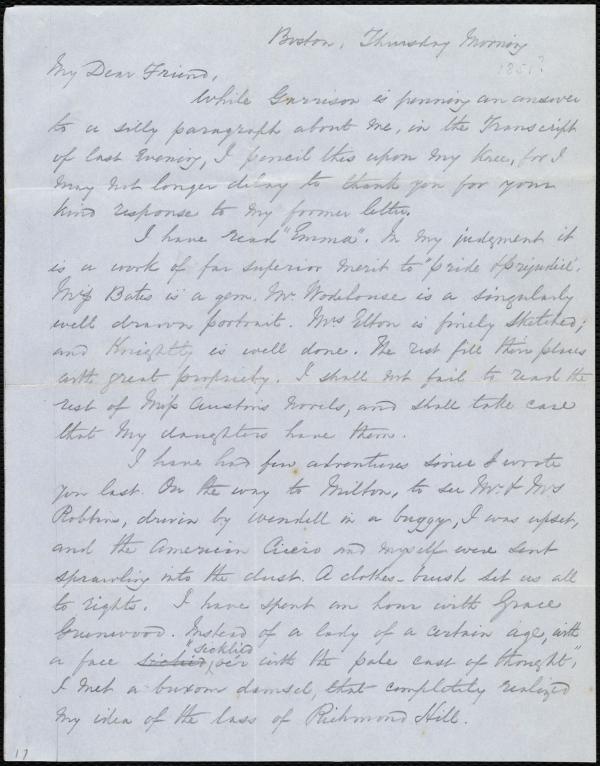 Boston, Thursday Morning
1851?
My Dear Friend,
While Garrison is penning an answer
to a silly paragraph about me, in the Transcript
of last Evening, I pencil this upon my knee, for I
may not longer delay to thank you for your
kind response to my former letter.
I have read "Emma". In my judgment it
is a work of far superior merit to "pride & prejudice'.
Miss Bates is a gem. Mr. Wodehouse is a singularly
well drawn portrait. Mrs Elton is finely sketched;
and Knightly is well done. The rest fill their places
with great propriety. I shall not fail to read the
rest of Miss Austin's novels, and shall take care
that my daughters have them.
I have had few adventures since I wrote
you last. On the way to Milton, to see Mr. & Mrs
Robbin, driven by Wendell in a buggy, I was upset,
and the American Cicero and myself were sent
sprawling into the dust. A clothes-brush set us all
to rights. I have spent an hour with Grace
Greenwood. Instead of a lady of a certain age, with
a face "sicklied o'er with the pale cast of thought",
I met a buxom damsel, that completely realized
my idea of the lass of Richmond Hill.
17